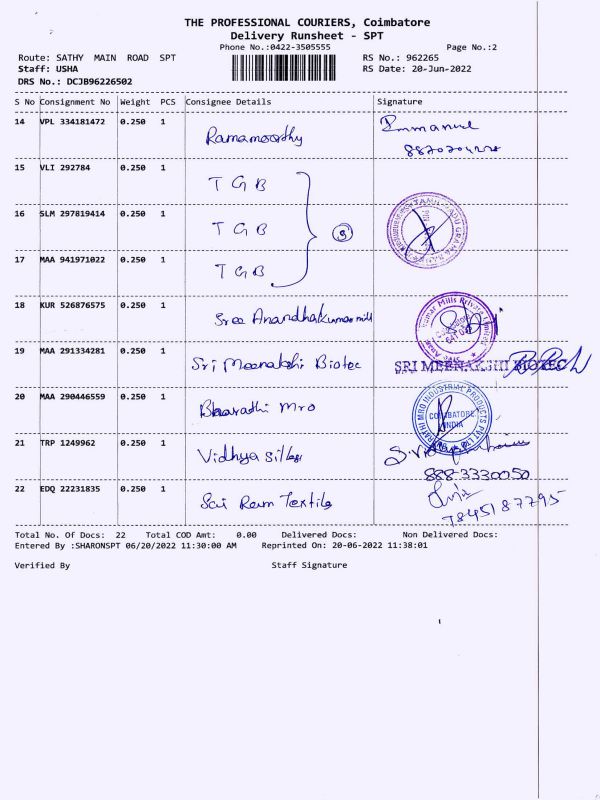 THE PROFESSIONAL COURIERS, Coimbatore
Delivery Runsheet - SPT
Phone No.:0422-3505555 Page No.:2
Route: SATHY MAIN ROAD SPT RS No.: 962265
Staff: USHA RS Date: 20-Jun-2022
DRS No.: DCJB96226502
S No Consignment No Weight PCS Consignee Details Signature
14 VPL 334181472 0.250 1 Ramamoorthy Emmanuel
15 VLI 292784 0.250 1 TGB
16 SLM 297819414 0.250 1 TGB
17 MAA 941971022 0.250 1 TGB
18 KUR 526876575 0.250 1 Sree Anandhakumar mill
19 MAA 291334281 0.250 1 Sri Meenakshi Biotec SRI MEENAKSHI BIOTEC
20 MAA 290446559 0.250 1 Bharathi Mro BHARATHI MRO INDUSTRIAL PRODUCTS PVT LTD COIMBATORE INDIA
21 TRP 1249962 0.250 1 Vidhya silks
888-3330050
22 EDQ 22231835 0.250 1 Sai Ram Textile
7845187795
Total No. Of Docs: 22 Total COD Amt: 0.00 Delivered Docs: Non Delivered Docs:
Entered By :SHARONSPT 06/20/2022 11:30:00 AM Reprinted On: 20-06-2022 11:38:01
Verified By Staff Signature